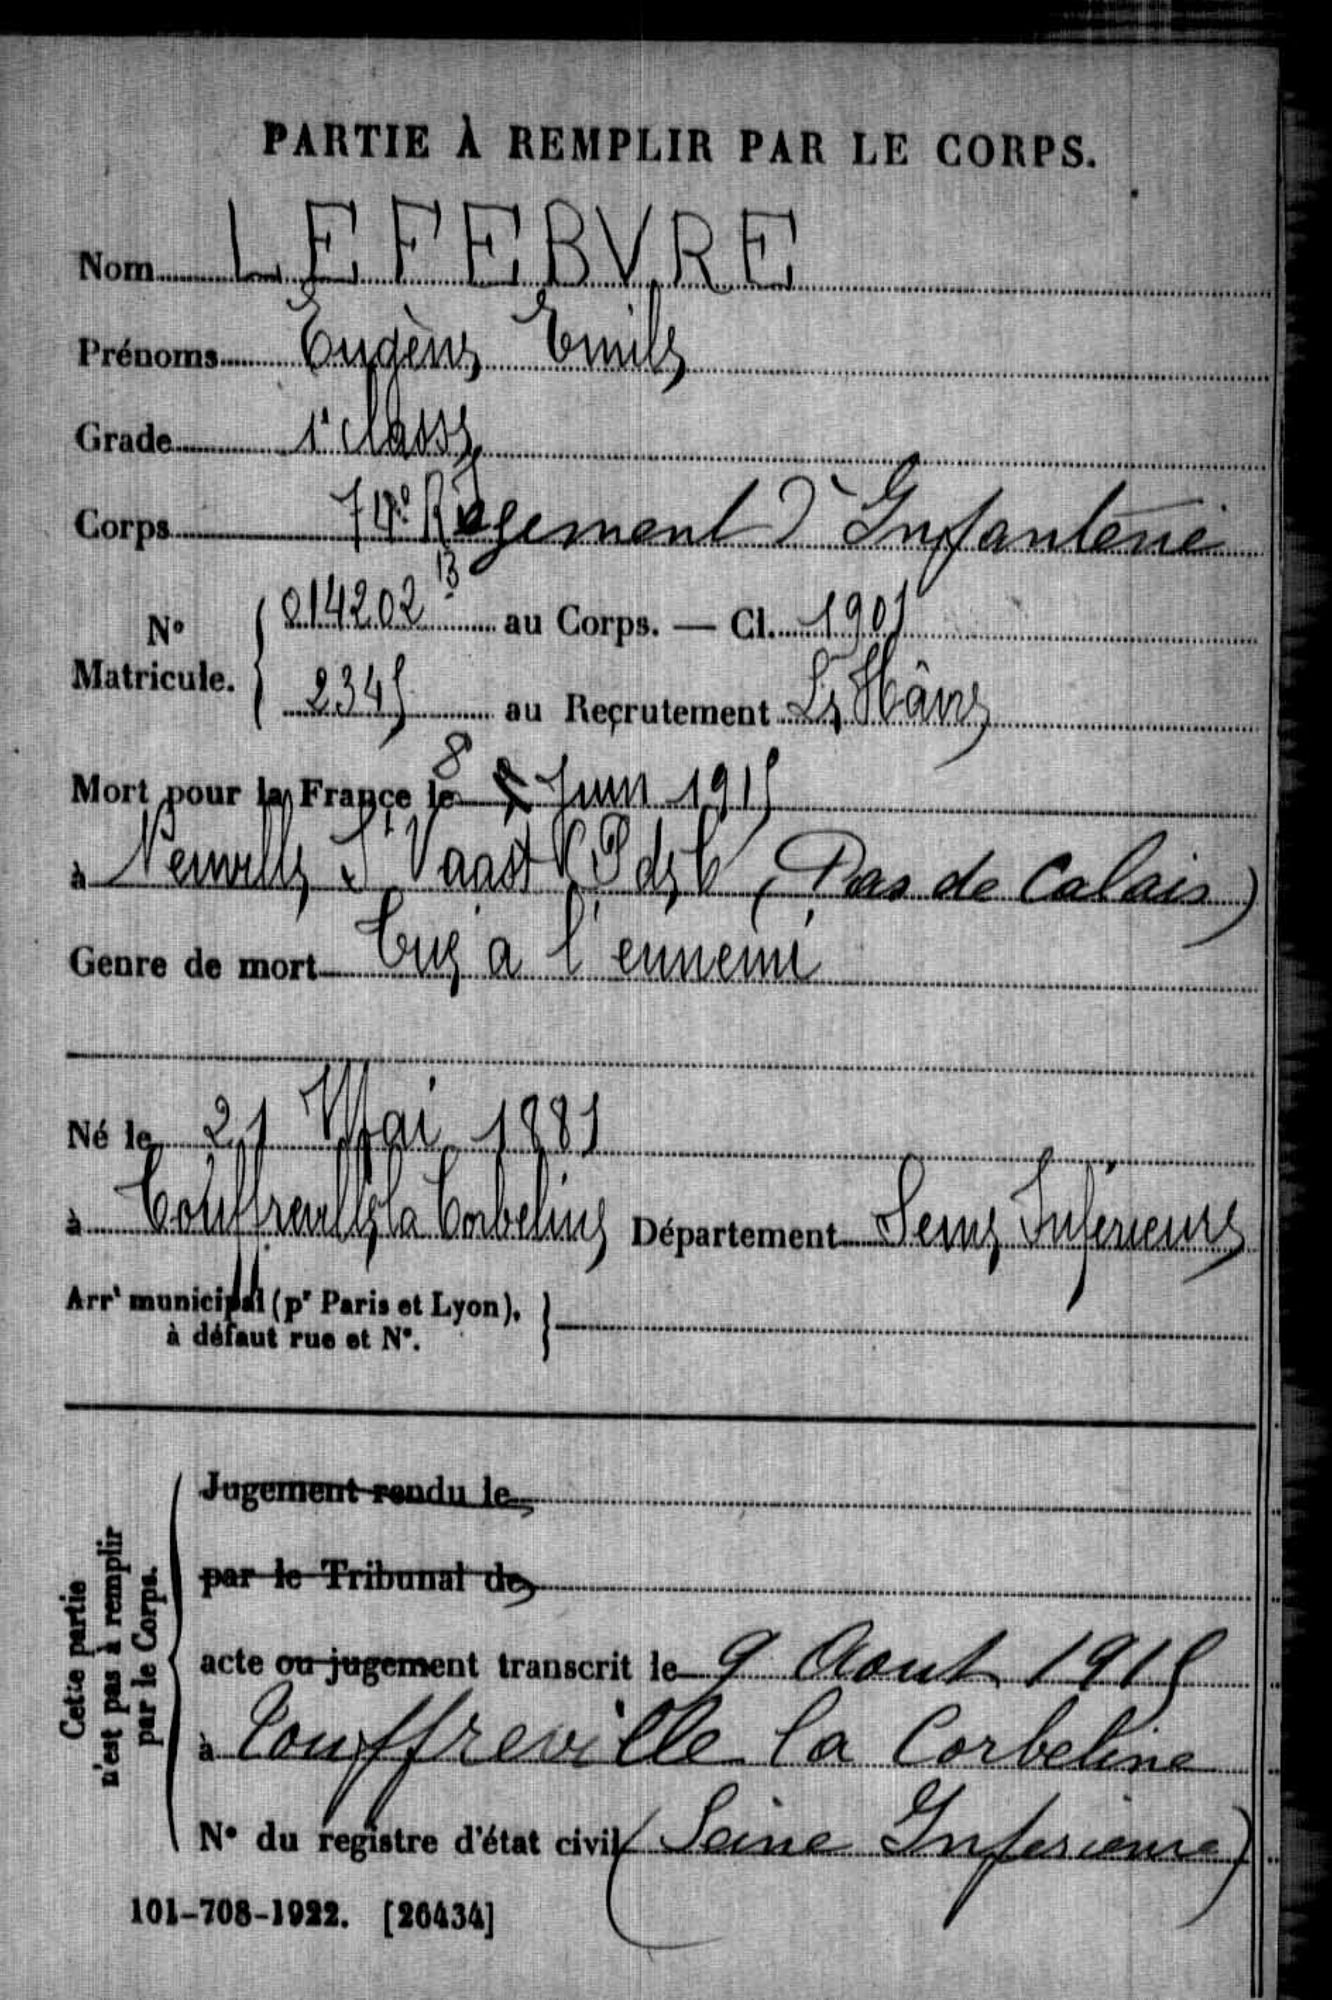 PARTIE À REMPLIR PAR LE CORPS.
Nom LEFEBVRE
Prénoms Eugène Emile
Grade 1e classe
Corps 74e Régement d'Infanterie
N° Matricule. 014202 13 au Corps. — Cl. 1901
2345 au Recrutement Le Hâvre
Mort pour la France le 8 Juin 1915
à Neuville St Vaast P de C (Pas de Calais)
Genre de mort Tué a l'ennemi
Né le 21 Mai 1881
à Touffreville la Corbeline Département Seine Inférieure
Arrt municipal (pr Paris et Lyon),
à défaut rue et N°.
Cette partie
n'est pas à remplir
par le Corps.
Jugement rendu le
par le Tribunal de
acte ou jugement transcrit le 9 Aout 1915
à Touffreville la Corbeline
N° du registre d'état civil (Seine Inferieure)
101-708-1922. [26434]